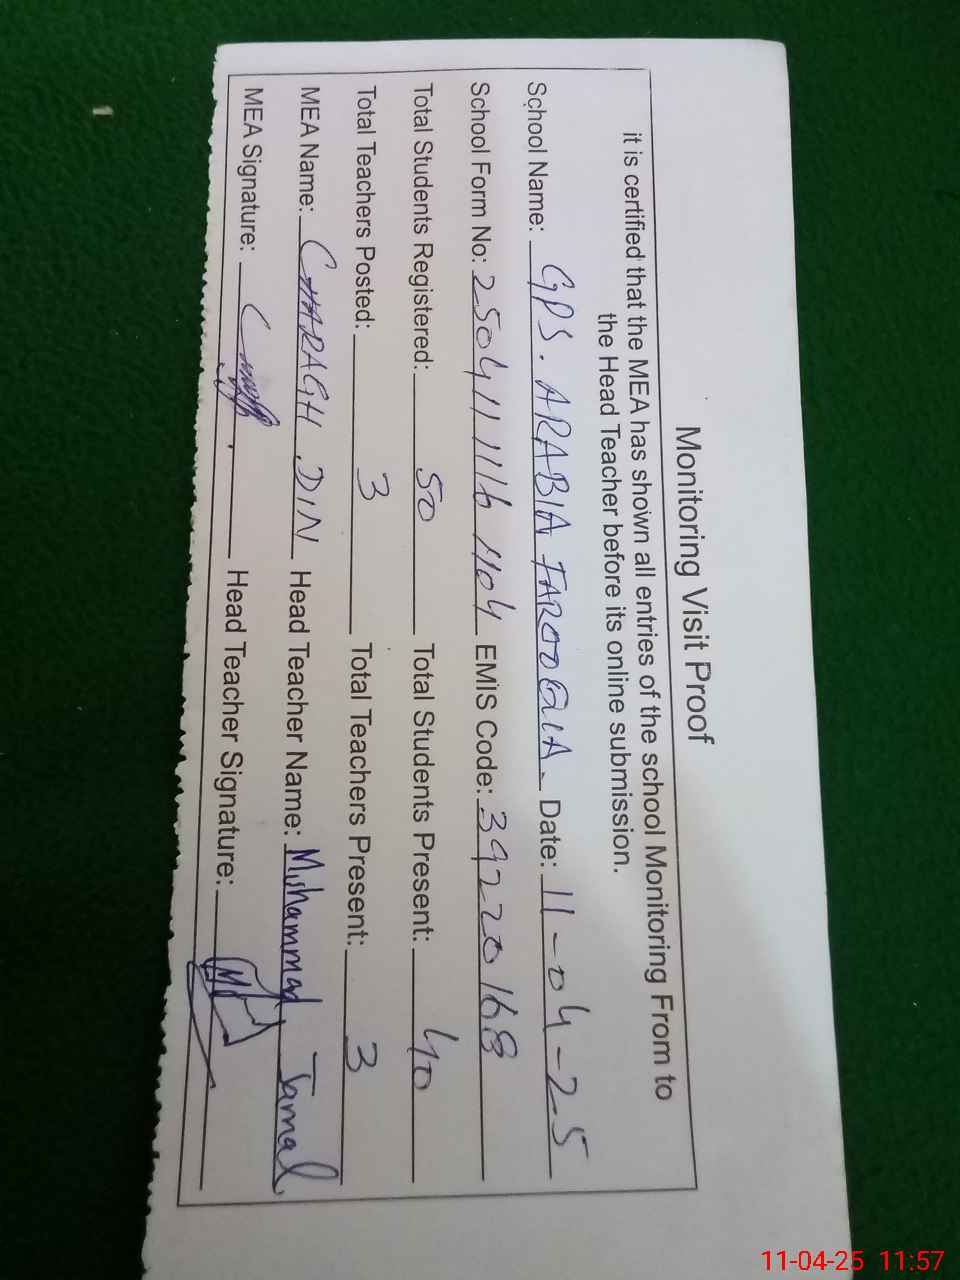 Monitoring Visit Proof
it is certified that the MEA has shown all entries of the school Monitoring From to
the Head Teacher before its online submission.
School Name: GPS. ARABIA FAROOQIA. Date: 11-04-25
School Form No: 25041111161104 EMIS Code: 39220168
Total Students Registered: 50 Total Students Present: 40
Total Teachers Posted: 3 Total Teachers Present: 3
MEA Name: CHARAGH DIN Head Teacher Name: Muhammad Jamal
MEA Signature: Head Teacher Signature:
11-04-25 11:57